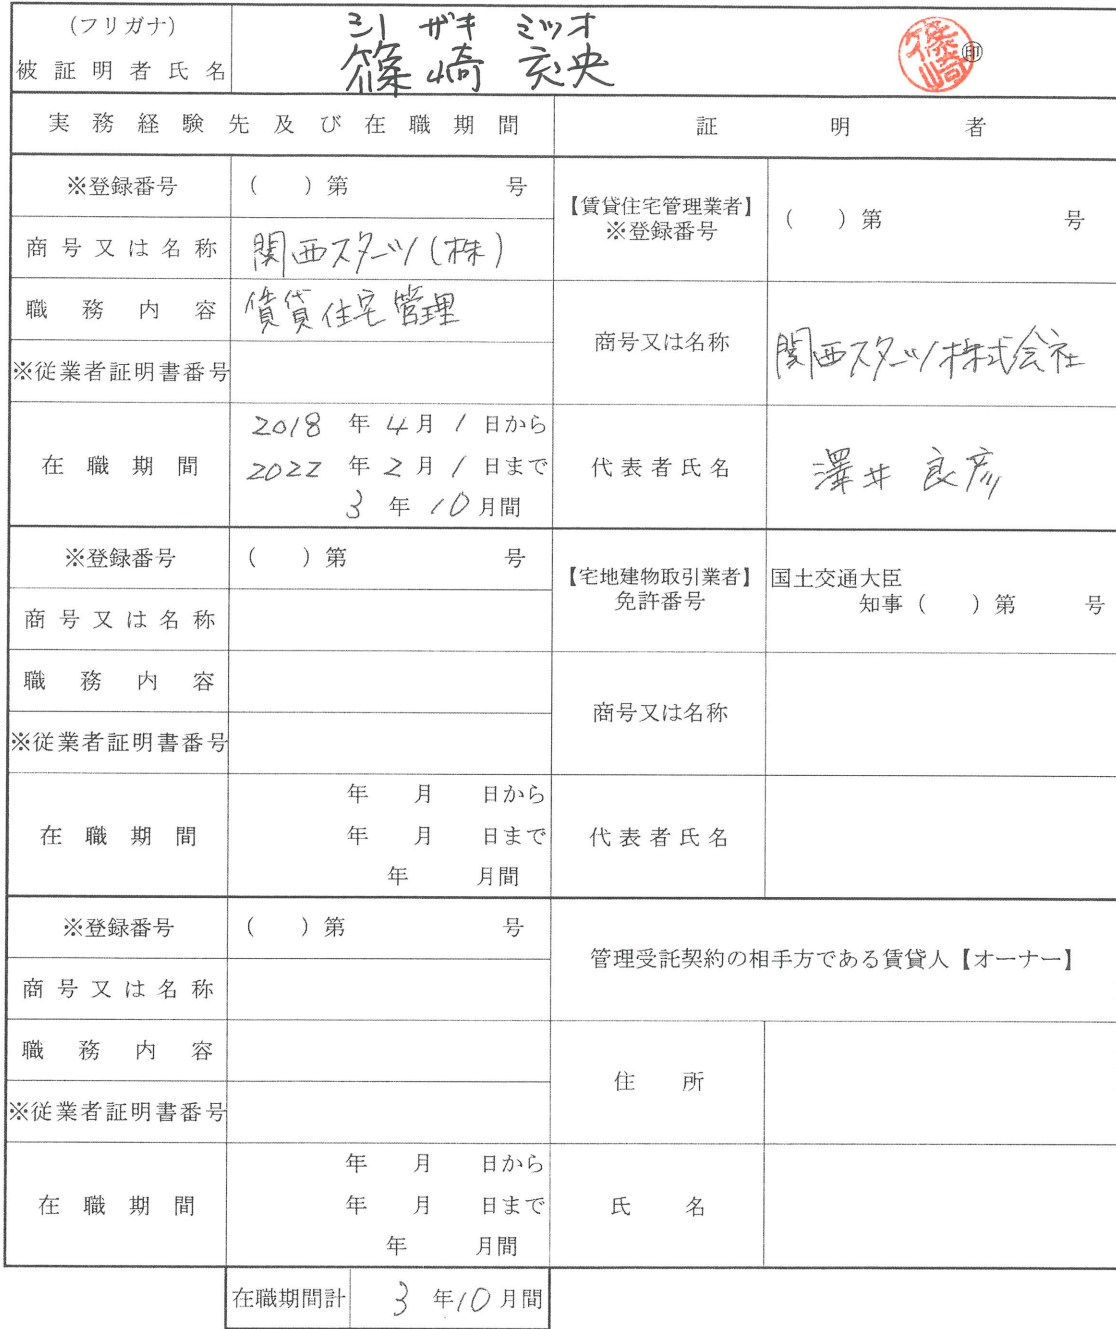 (フリガナ) シノ ザキ ミツオ
被証明者氏名 篠崎 充央 篠崎 ㊞
実務経験先及び在職期間 証明者
※登録番号 ( )第 号
【賃貸住宅管理業者】
※登録番号 ( )第 号
商号又は名称 関西スターツ(株)
職務内容 賃貸住宅管理
商号又は名称 関西スターツ株式会社
※従業者証明書番号
2018 年 4月 1 日から
在職期間 2022 年 2月 1 日まで
3 年 10月間
代表者氏名 澤井 良彦
※登録番号 ( )第 号
【宅地建物取引業者】
免許番号
国土交通大臣
知事( )第 号
商号又は名称
職務内容
商号又は名称
※従業者証明書番号
年 月 日から
在職期間 年 月 日まで
年 月間
代表者氏名
※登録番号 ( )第 号
管理受託契約の相手方である賃貸人【オーナー】
商号又は名称
職務内容
住所
※従業者証明書番号
年 月 日から
在職期間 年 月 日まで
年 月間
氏名
在職期間計 3 年10月間